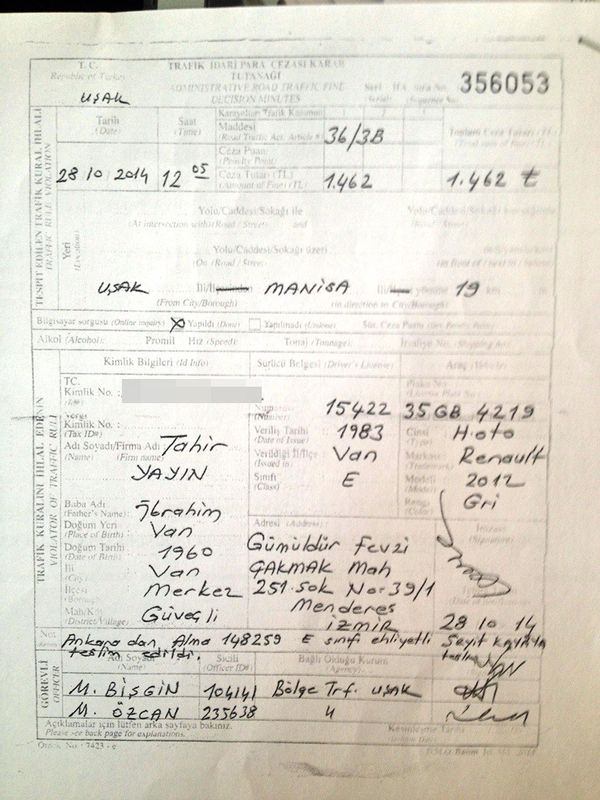 T. C.
Republic of Turkey
UŞAK
TRAFİK İDARİ PARA CEZASI KARAR
TUTANAĞI
ADMINISTRATIVE ROAD TRAFFIC FINE
DECISION MINUTES
Seri HA Sıra No:
(Serial) (Sequence No)
356053
Tarih
(Date)
Saat
(Time)
Karayolları Trafik Kanunu
Maddesi
(Road Traffic Act. Article #
36/3B
Ceza Puanı
(Penalty Point)
Toplam Ceza Tutarı (TL)
28 10 2014 12 05
Ceza Tutarı (TL)
(Amount of Fine) (TL)
1.462
1.462 ₺
TESPİT EDİLEN TRAFİK KURAL İHLALİ
TRAFFIC RULE VIOLATION
Yeri
(Location)
Yolu/Caddesi/Sokağı ile
(At intersection with) (Road / Street) and
Yolu/Caddesi/Sokağı
(Road / Street)
Yolu/Caddesi/Sokağı üzeri
(On) (Road / Street)
UŞAK MANİSA 19 km
(From City/Borough) (in direction to City/Borough)
Bilgisayar sorgusu (Online inquiry) X Yapıldı (Done) Yapılmadı (Undone)
Alkol (Alcohol): Promil Hız (Speed): Tonaj (Tonnage):
Kimlik Bilgileri (Id Info)
Sürücü Belgesi (Driver's License)
Araç
TRAFİK KURALINI İHLAL EDENİN
VIOLATOR OF TRAFFIC RULE
TC.
Kimlik No. :
(Id#)
Vergi
Kimlik No. :
(Tax ID#)
Adı Soyadı/Firma Adı :
(Name) (Firm name)
Tahir
YAYIN
Baba Adı
(Father's Name) :
İbrahim
Doğum Yeri
(Place of Birth)
Van
Doğum Tarihi
(Date of Birth)
1960
İli
(City)
Van
İlçesi
(Borough)
Merkez
Mah/Köy
(District/Village)
Güveçli
Numarası
(Number)
15422
Veriliş Tarihi
(Date of Issue)
1983
Verildiği İl/İlçe
(Issued in)
Van
Sınıfı
(Class)
E
Plaka No
35 GB 4219
Cinsi
(Type)
H.oto
Markası
(Trademark)
Renault
Modeli
(Model)
2012
Rengi
Gri
Adresi (Address)
Gümüldür Fevzi
ÇAKMAK Mah
251.Sok No:39/1
Menderes
İZMİR
İmzası
(Signature)
28 10 14
Not:
Ankara dan Alma 148259 E sınıfı ehliyetli Seyit
teslim edildi.
GÖREVLİ
OFFICER
Adı Soyadı
(Name)
Sicili
(Officer ID#)
Bağlı Olduğu Kurum
(Agency)
M. BİŞGİN 104141 Bölge Trf. UŞAK
M. ÖZCAN 235638 "
Açıklamalar için lütfen arka sayfaya bakınız.
Please see back page for explanations.
Kesinleşme Tarihi
Örnek No : 7423 - e